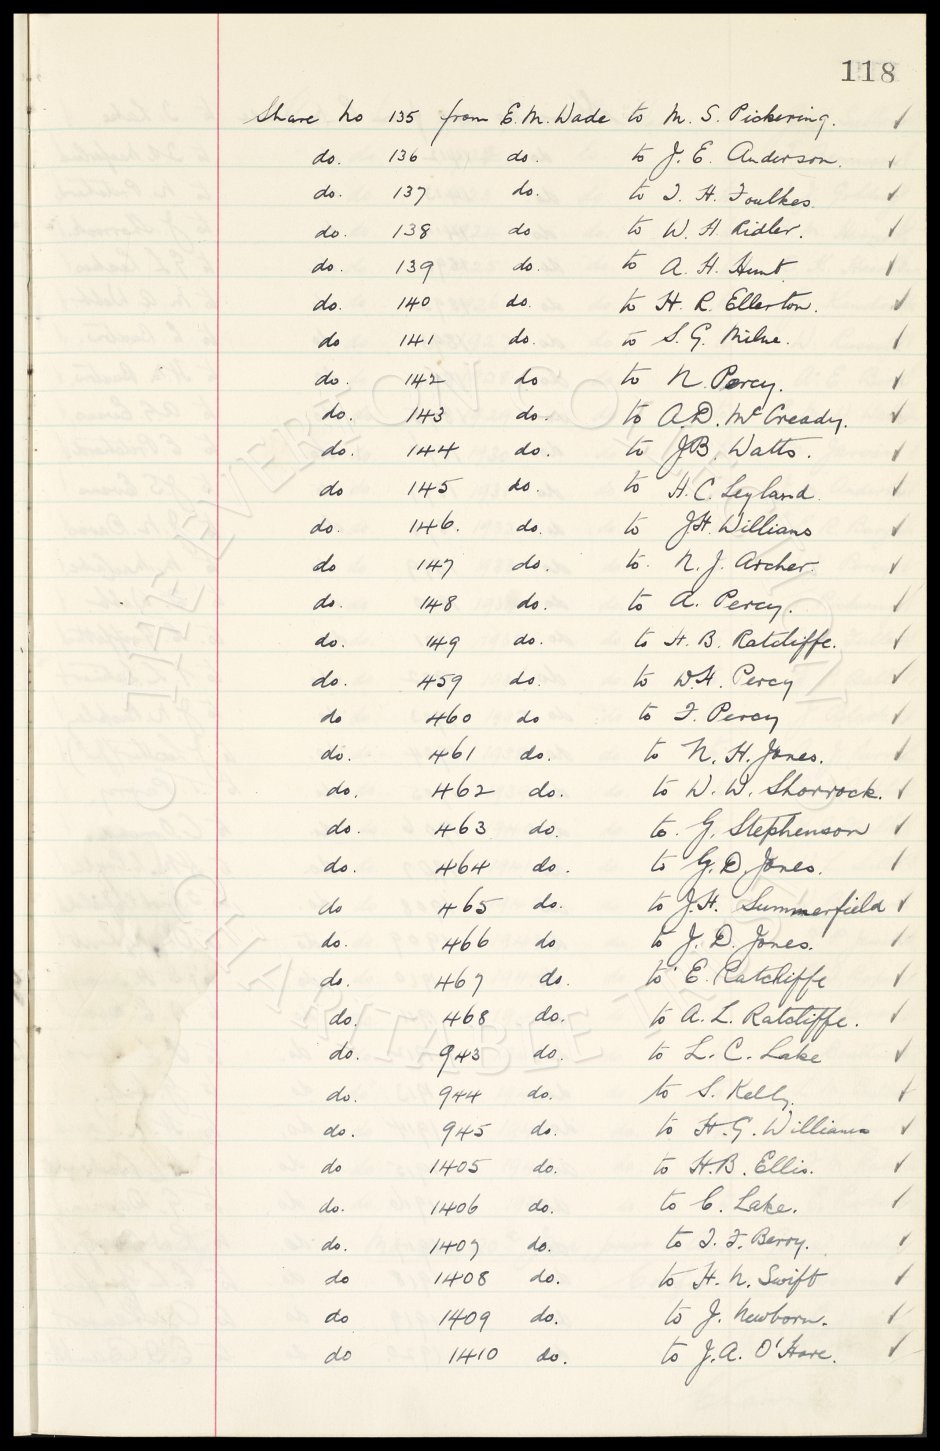 118
Share No 135 from E.M. Wade to M. S. Pickering. ✓
do. 136 do. to J. E. Anderson. ✓
do. 137 do. to T. H. Foulkes. ✓
do. 138 do to W. H. Ridler. ✓
do. 139 do. to A. H. Hunt. ✓
do. 140 do. to H. R. Ellerton. ✓
do 141 do. to S. G. Milne. ✓
do. 142 do to N. Percy. ✓
do. 143 do. to A.D. McCready. ✓
do. 144 do. to J B. Watts. ✓
do 145 do. to H. C. Leyland. ✓
do. 146. do. to J.H. Williams ✓
do 147 do. to N. J. Archer. ✓
do. 148 do. to A. Percy. ✓
do. 149 do. to H. B. Ratcliffe. ✓
do. 459 do. to W.H. Percy ✓
do 460 do to F. Percy ✓
do. 461 do. to N. H. Jones. ✓
do. 462 do. to W. W. Shorrock. ✓
do. 463 do. to G. Stephenson ✓
do. 464 do. to G. D. Jones. ✓
do 465 do. to J.H. Summerfield ✓
do. 466 do to J. D. Jones. ✓
do. 467 do. to E. Ratcliffe ✓
do. 468 do. to A. L. Ratcliffe. ✓
do. 943 do. to L. C. Lake ✓
do. 944 do. to S. Kelly. ✓
do. 945 do. to H. G. Williams ✓
do 1405 do. to H.B. Ellis. ✓
do. 1406 do. to C. Lake. ✓
do. 1407 do. to T. F. Berry. ✓
do 1408 do. to H. N. Swift ✓
do 1409 do. to J. Newborn. ✓
do 1410 do. to J. A. O'Hare. ✓
THE EVERTON COLLECTION
CHARITABLE TRUST